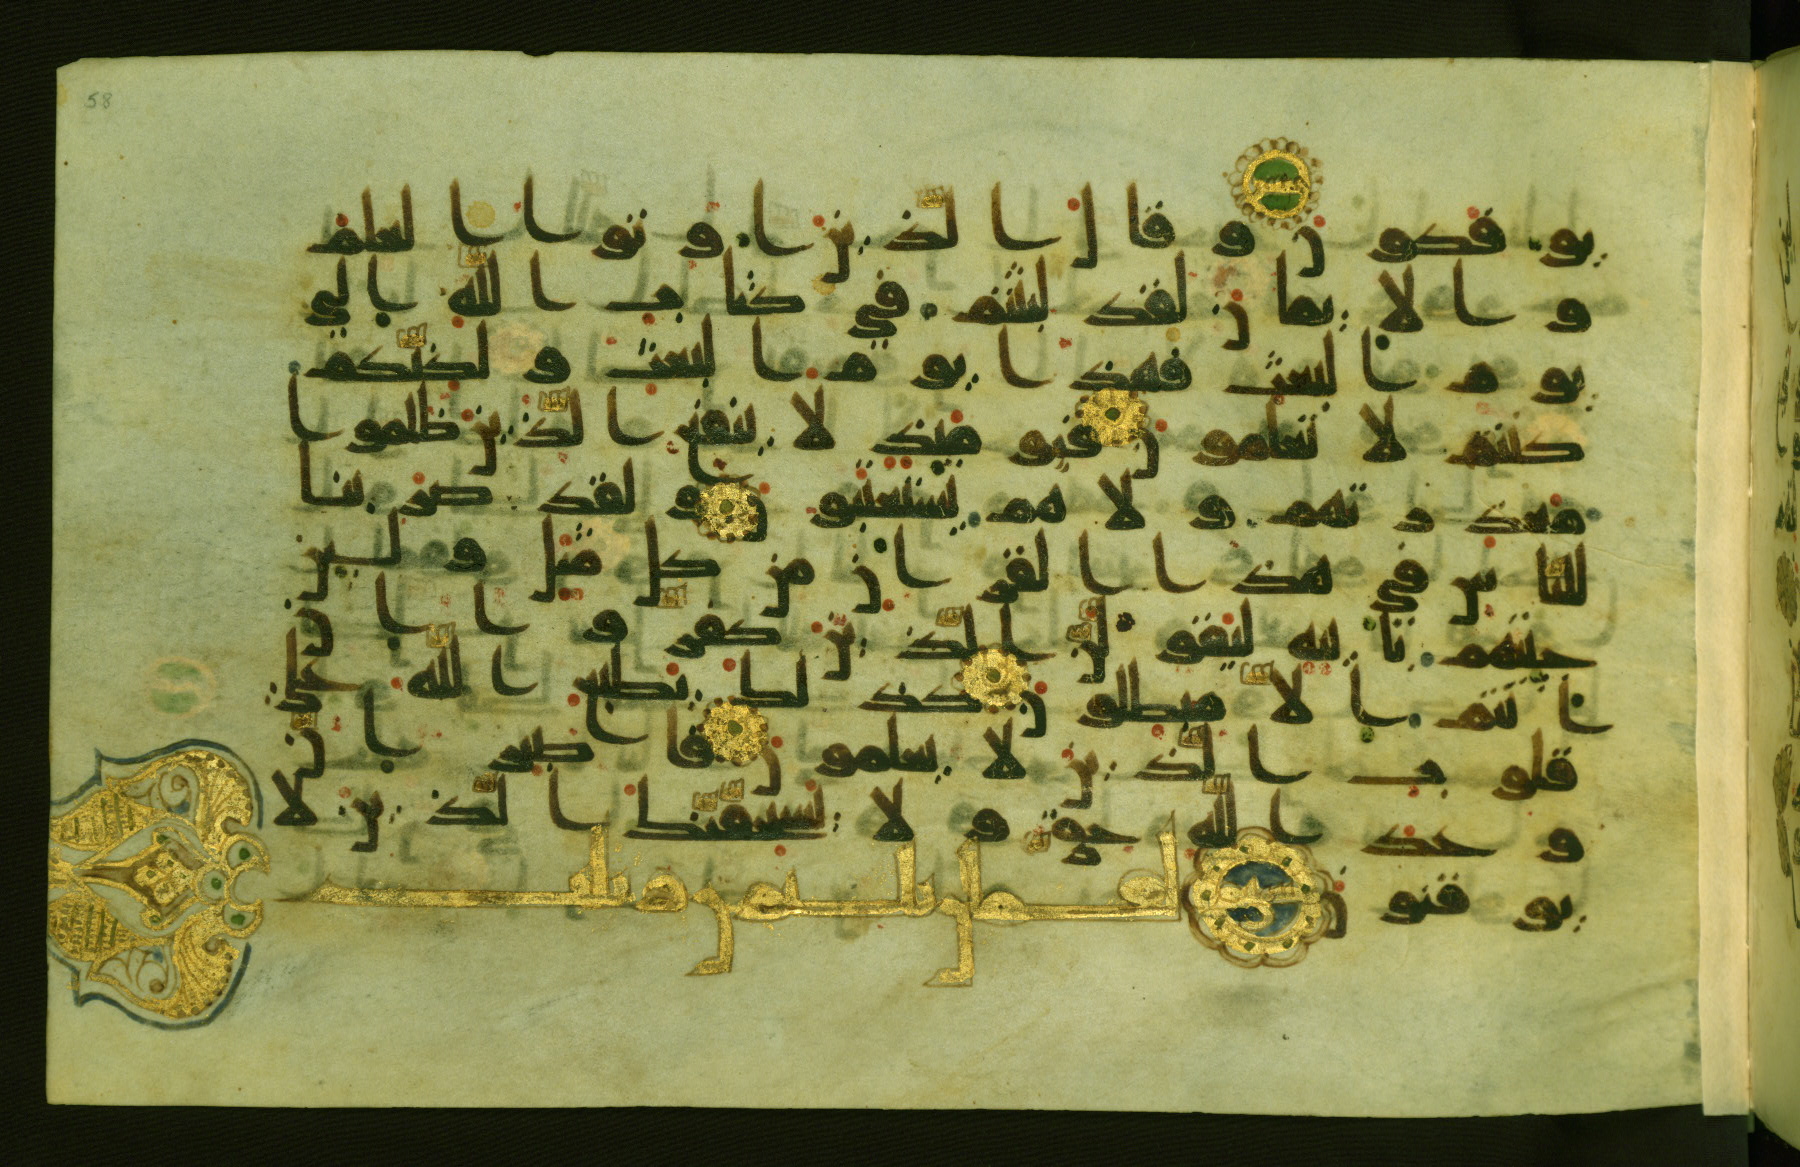 58
يوفكون وقال الذين اوتوا العلم
والايمان لقد لبثتم في كتاب الله الى
يوم البعث فهذا يوم البعث ولكنكم
كنتم لا تعلمون فيومئذ لا ينفع الذين ظلموا
معذرتهم ولا هم يستعتبون ولقد ضربنا
للناس في هذا القران من كل مثل ولئن
جئتهم باية ليقولن الذين كفروا ان
انتم الا مبطلون كذلك يطبع الله على
قلوب الذين لا يعلمون فاصبر ان
وعد الله حق ولا يستخفنك الذين لا
يوقنون لقمن